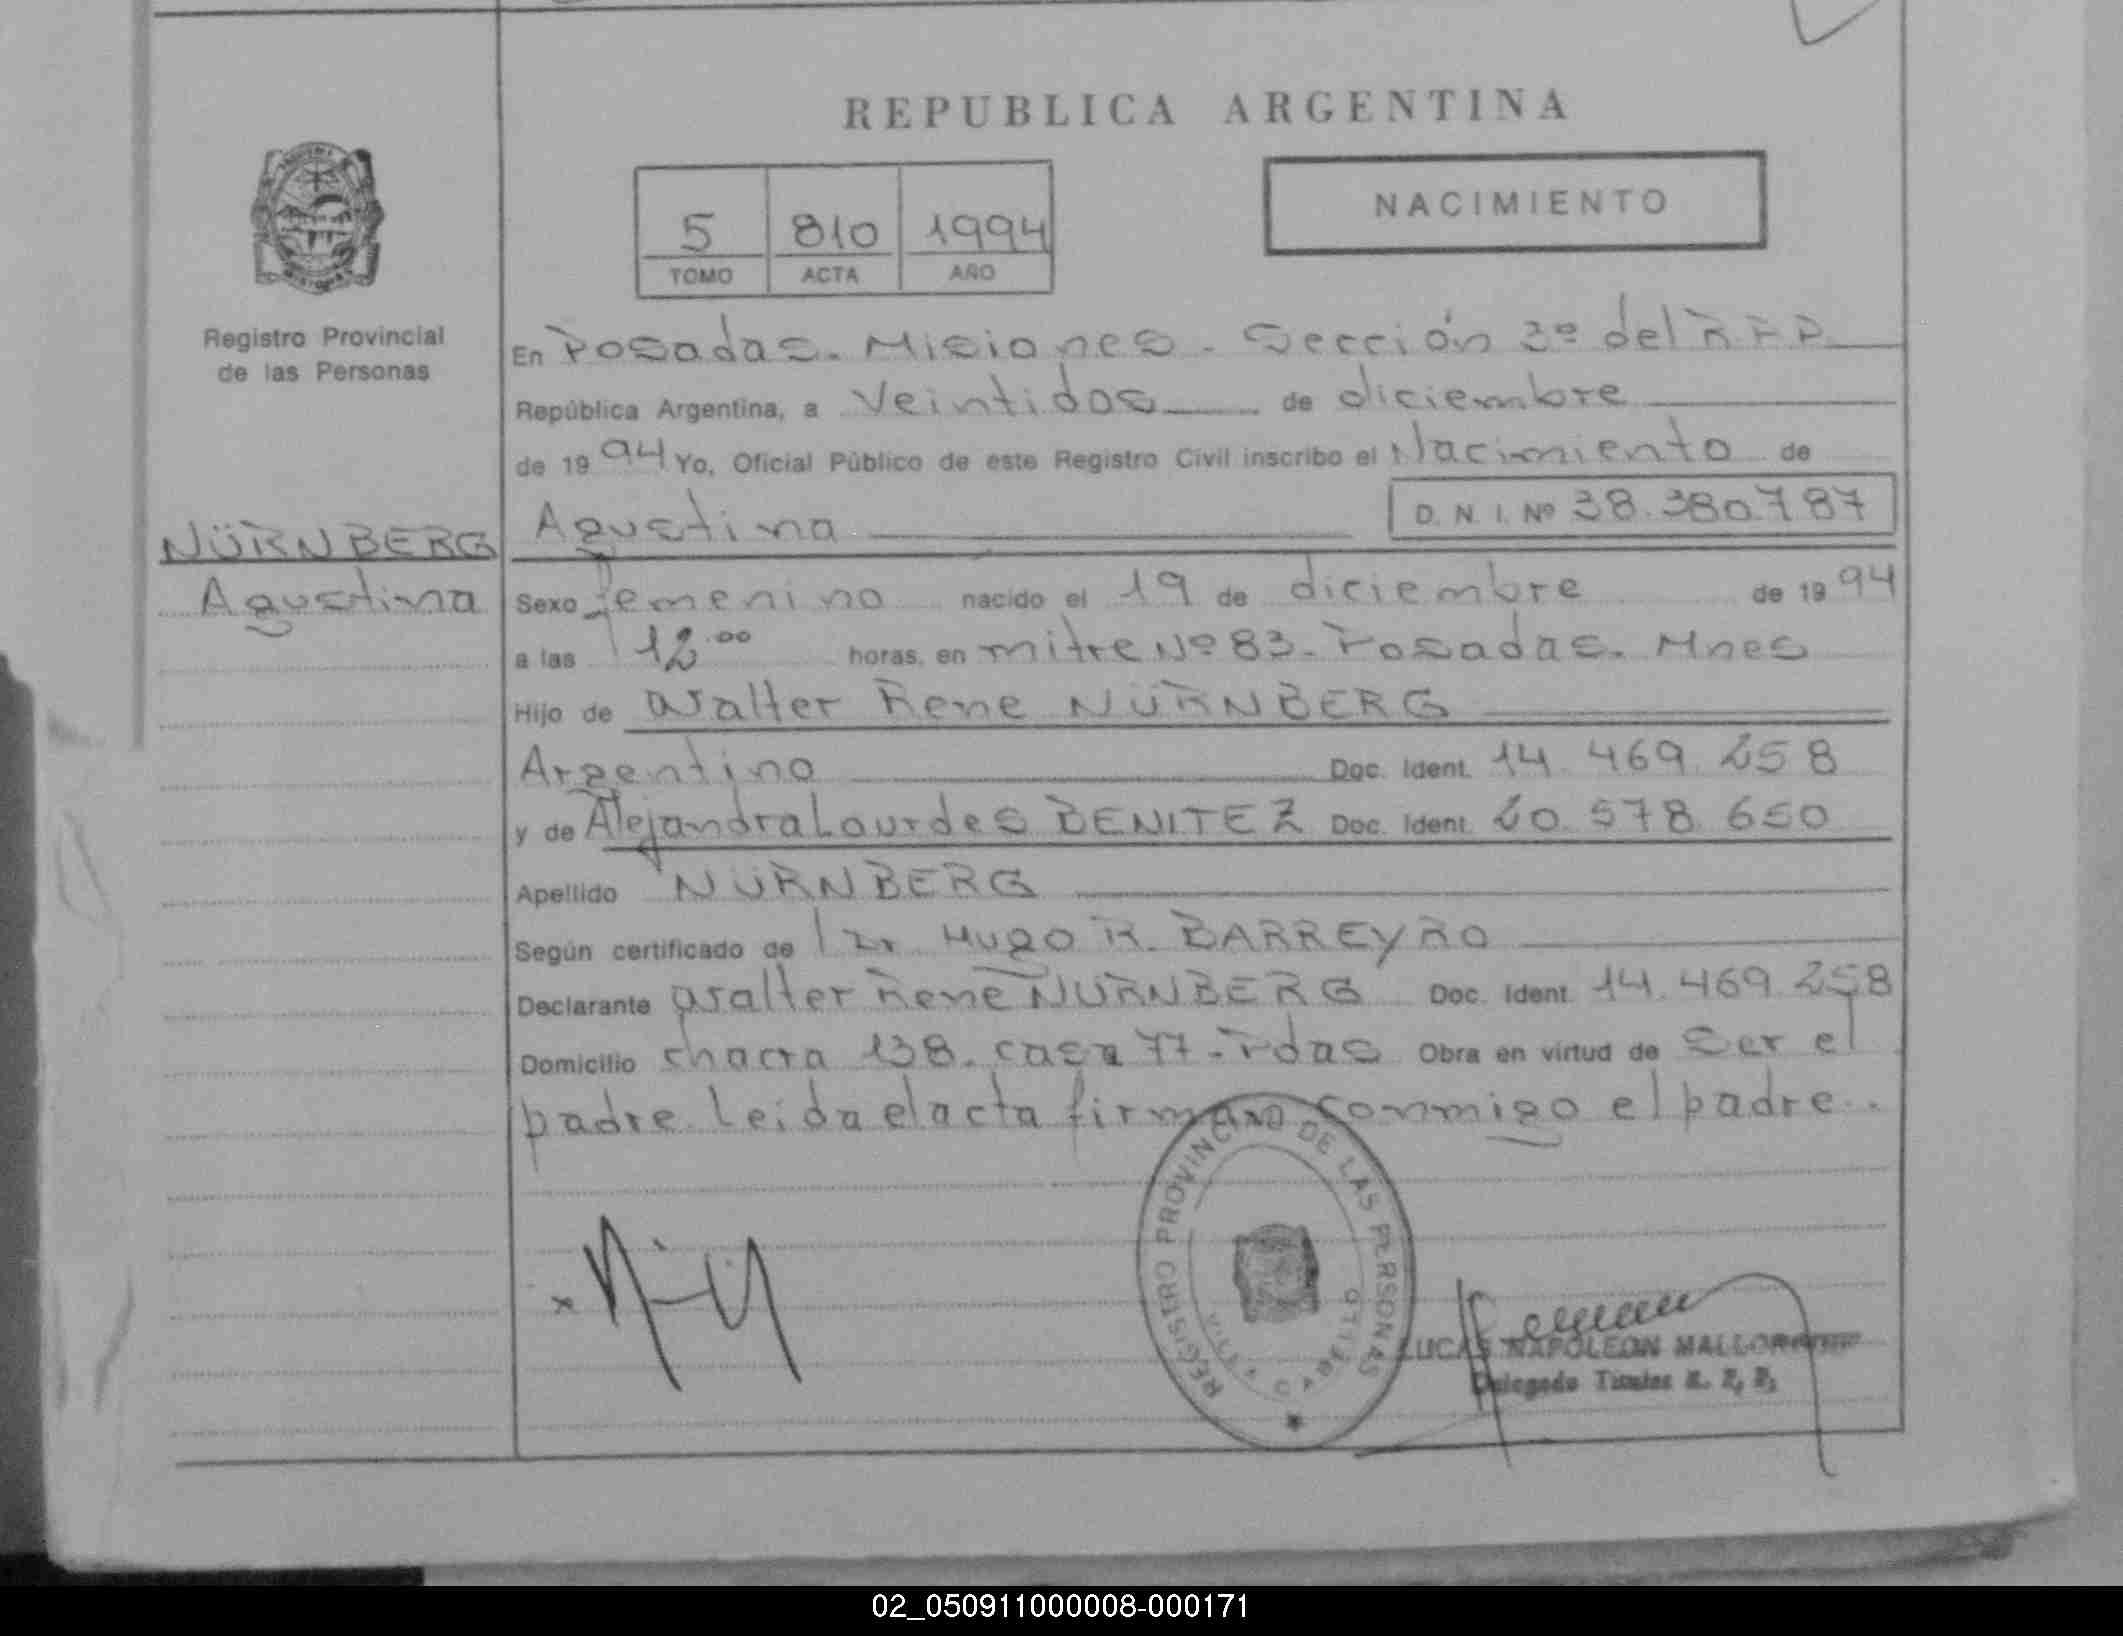 REPUBLICA ARGENTINA
5 810 1994
TOMO ACTA AÑO
NACIMIENTO
Registro Provincial
de las Personas
En Posadas. Misiones. Sección 2º del R.P.P.
República Argentina, a Veintidos de diciembre
de 1994 Yo, Oficial Público de este Registro Civil inscribo el Nacimiento de
Agustina D. N. I. Nº 38.380.787
NÜRNBERG
Agustina
Sexo femenino nacido el 19 de diciembre de 1994
a las 12.00 horas, en mitre Nº 83. Posadas. Mnes
Hijo de Walter Rene NÜRNBERG
Argentino Doc. Ident. 14.469.258
y de Alejandra Lourdes BENITEZ Doc. Ident. 20.578.650
Apellido NÜRNBERG
Según certificado de Dr Hugo R. BARREYRO
Declarante Walter Rene NÜRNBERG Doc. Ident. 14.469.258
Domicilio chacra 138. casa 77. Pdas Obra en virtud de Ser el
padre. Leida el acta firman conmigo el padre.
REGISTRO PROVINCIAL DE LAS PERSONAS
LUCAS NAPOLEON
Delegado Titular R. P. P.
02_050911000008-000171